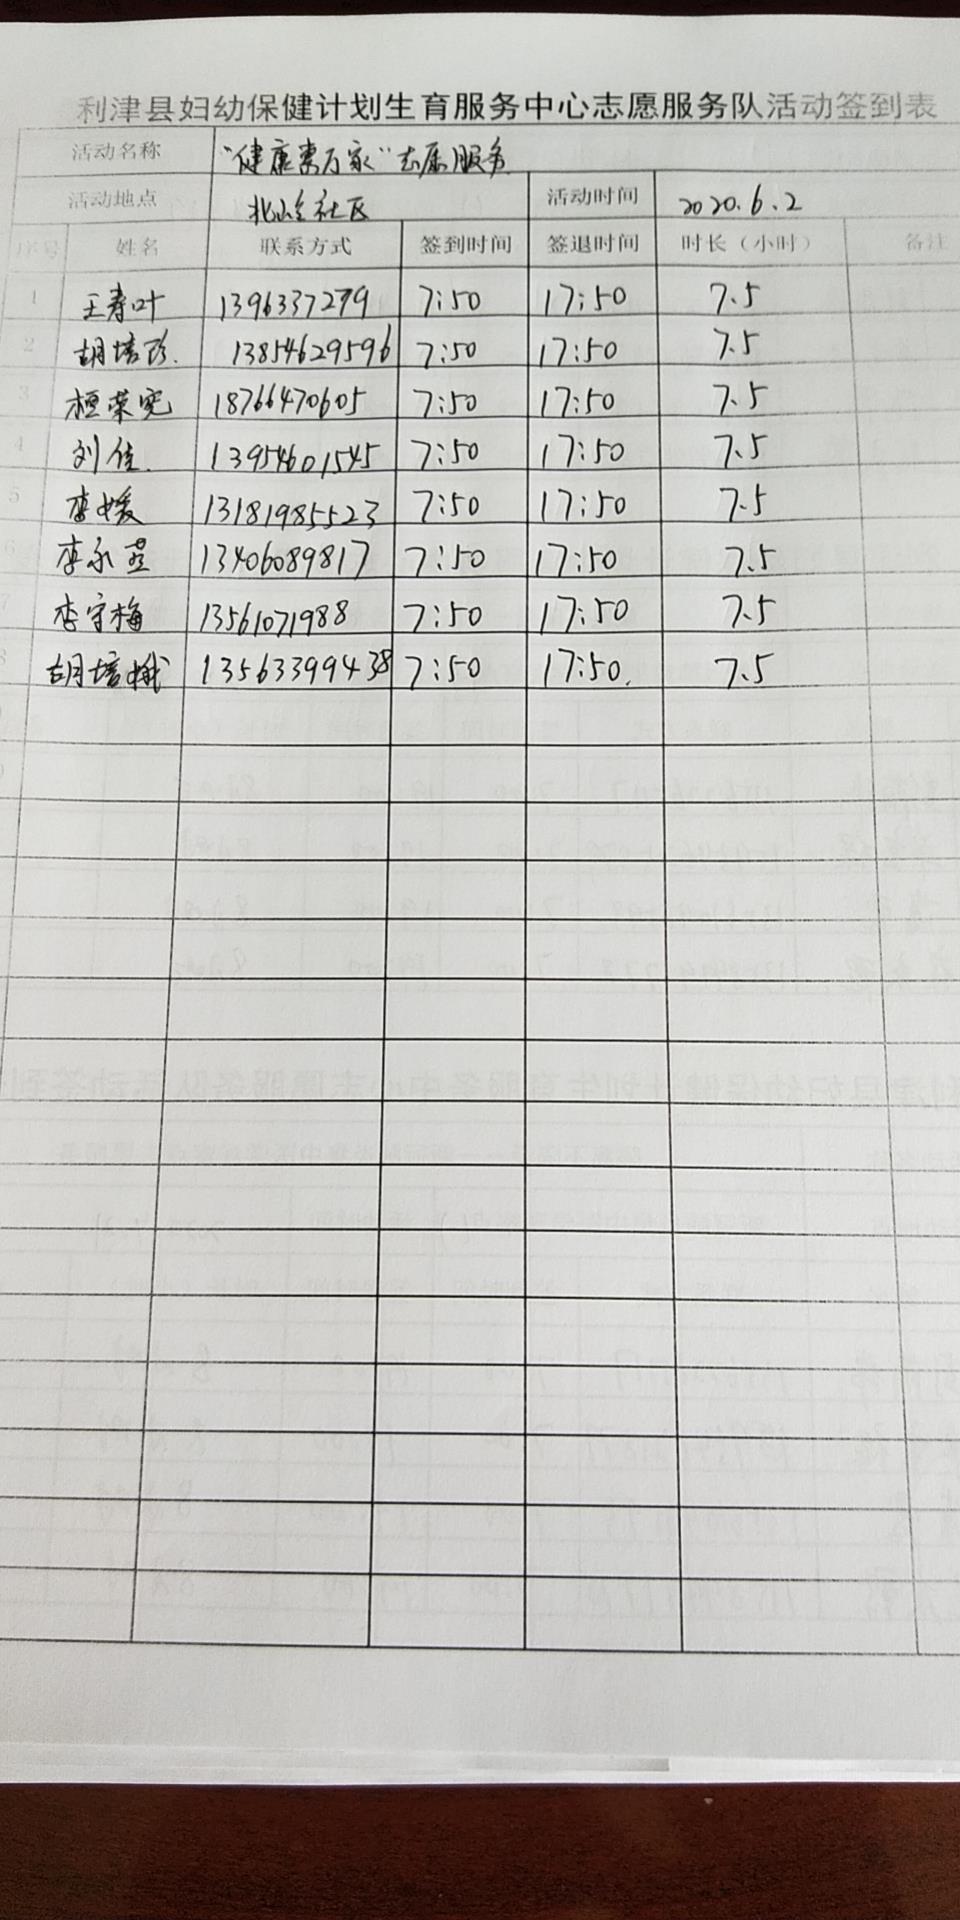 利津县妇幼保健计划生育服务中心志愿服务队活动签到表
活动名称 "健康惠万家"志愿服务
活动地点 北岭社区 活动时间 2020.6.2
序号 姓名 联系方式 签到时间 签退时间 时长（小时） 备注
1 王寿叶 1396337279 7:50 17:50 7.5
2 胡培珍. 13854629596 7:50 17:50 7.5
3 桓荣宪 18766470605 7:50 17:50 7.5
4 刘佳. 13954601545 7:50 17:50 7.5
5 李媛 13181985523 7:50 17:50 7.5
6 李永莲 13406089817 7:50 17:50 7.5
7 李守梅 13561071988 7:50 17:50 7.5
8 胡培娥 13563399438 7:50 17:50. 7.5